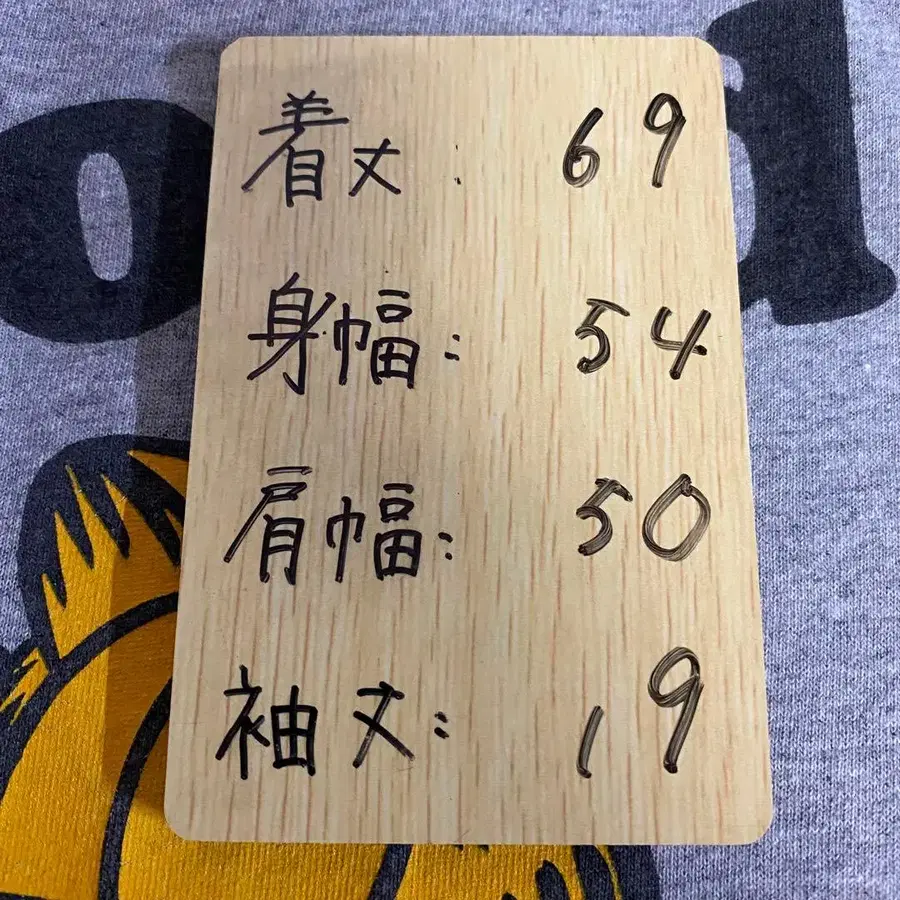 着丈: 69
身幅: 54
肩幅: 50
袖丈: 19